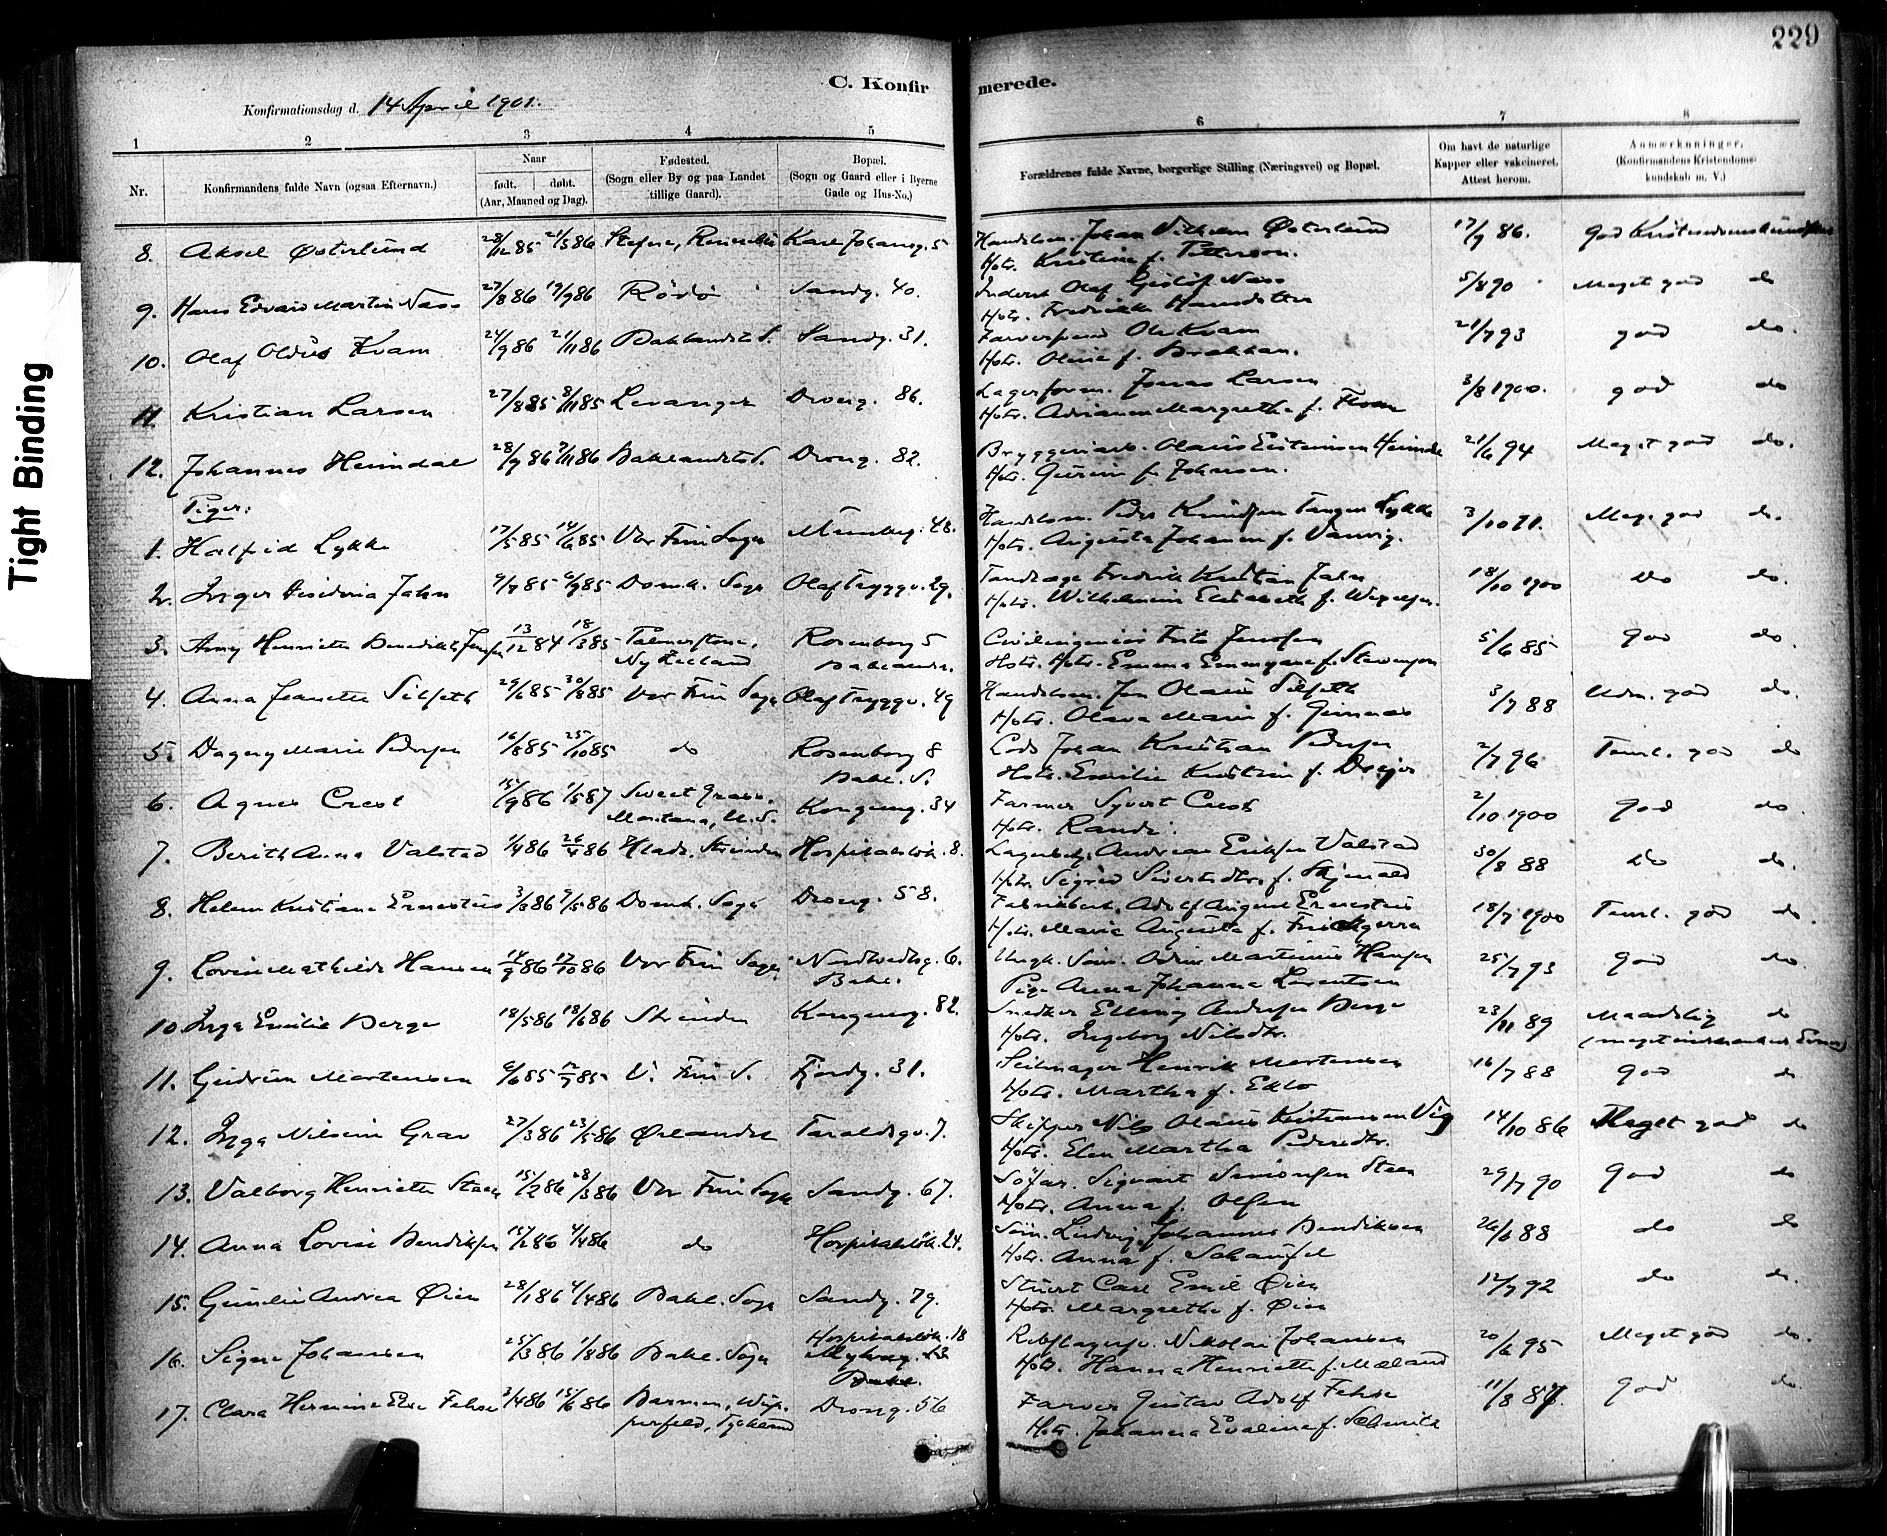 229
C. Konfirmerede.
Konfirmationsdag d. 14 April 1901.
1 2 3 4 5 6 7 8
Nr.
Konfirmandens fulde Navn (ogsaa Efternavn).
Naar
født. døbt.
(Aar, Maaned og Dag).
Fødested.
(Sogn eller By og paa Landet
tillige Gaard).
Bopæl.
(Sogn og Gaard eller i Byerne
Gade og Hus-No.)
Forældrenes fulde Navne, borgerlige Stilling (Næringsvei) og Bopæl.
Om havt de naturlige
Kapper eller vakcineret.
Attest herom.
Anmærkninger,
(Konfirmandens Kristendoms-
kundskab m. V.)
8. Aksel Østerlund 28/12 85 21/5 86 Karl Johansg. 5 Handelsm. Johan Vilhelm Østerlund 17/9 86. god Kristendomskundskab
Hstr. Kristine f. Petterson.
9. Hans Edvard Martin Næss 27/8 86 19/9 86 Rödö Sandg. 40. Olaf Næss 5/8 90 Meget god do
Hstr. Fredrikke
10. Olaf Oldus Kvam 24/9 86 21/11 86 Baklandets S. Sandg. 31. Ole Kvam 21/7 93 god do.
Hstr. Oline f. Brekkan.
11 Kristian Larsen 27/8 85 8/11 85 Levanger Drong. 86. Lagerform. Jonas Larsen 3/8 1900. god do
Hstr. Adriane Margrethe f.
12. Johannes Heimdal 28/9 86 7/11 86 Baklandets S. Drong. 82. Bryggeriarb. Olaus Eistensen Heimdal 21/6 94 Meget god do.
Hstr. Gurine f. Johnsen.
Piger:
1. Halfrid Lykke 17/5 85 14/6 85 Vor Frue Sogn Munkeg. 48. Handelsm. Peder Knudsen Tangen Lykke 3/10 91. Meget god do.
Hstr. Augusta Johanne f. Vanvig.
2. Inger Jahn 9/7 85 6/9 85 Domk. Sogn Olaf Tryggv. 29. Tandlæge Fredrik Kristian Jahn 18/10 1900 do do.
Hstr. Wilhelmine Elisabeth f. Wexelsen.
3. Amy Henriette Benedikte Jenssen 13/12 84 18/3 85 Palmerstone, Rosenborg 5 Civilingeniör Fritz Jenssen 5/6 85 god do.
Ny Zeeland Baklandet. Hstr. Emma Emmyane f. Stevenson
4. Anna Jeanette Silseth 29/6 85 30/8 85 Vor Frue Sogn Olaf Tryggv. 49 Handelsm. Jon Olaus Silseth 3/7 88 Udm. god do.
Hstr. Olava Marie f.
5. Dagny Marie Pedersen 16/8 85 25/10 85 do Rosenborg 8 Lods Johan Kristian Pedersen 2/7 96 Teml. god do
Bakl. S. Hstr. Emilie Kristine f. Dreyer
6. Agnes Crest 15/9 86 1/5 87 Sweet Grass, Kongensg. 34 Farmer Syvert Crest 2/10 1900 god do.
Montana, U.S. Hstr. Randi.
7. Berith Anna Valstad 1/4 86 26/4 86 Hlade, Strinden Hospitalslök. 8. Andreas Eriksen Valstad 30/8 88 do do.
Hstr. Sigrid Sivertsdtr. f. Skjervold
8. Helene Kristiane Ernestus 3/3 86 9/5 86 Domk. Sogn Drong. 58. Adolf August Ernestus 18/7 1900 Teml. god do.
Hstr. Maria Augusta f.
9. Lovise Mathilde Hansen 14/9 86 17/10 86 Vor Frue Sogn Nordvedtsg. 6. Ungk. Söm. Odin Martinius Hansen 25/7 93 god do.
Bakl. Pige Anna Johanna Lorentsen
10. Inga Emilie Berge 18/5 86 13/6 86 Strinden Kongensg. 82. Snedker Elling Andersen Berge 23/11 89 Maadelig do
Hstr. Ingeborg Nilsdtr.
11. Gudrun Mortensen 6/6 85 12/7 85 V. Frue S. Fjordg. 31. Seilmager Henrik Mortensen 16/7 88 god do
Hstr. Martha f. Eklo
12. Inga Nilsine Grav 27/3 86 23/5 86 Ørlandet Taraldsgv. 7. Skipper Nils Olaus Kristiansen Vig 14/10 86 Meget god do
Hstr. Elen Martha Pedersdtr.
13. Valborg Henriette Steen 15/2 86 28/3 86 Vor Frue Sogn Sandg. 67. Söfar. Sigvart Simonsen Steen 29/7 90 god do
Hstr. Anna f. Olsen
14. Anna Lovise Bendiksen 15/2 86 4/4 86 do Hospitalslök. 24. Söm. Ludvig Johannes Bendiksen 26/6 88 do do
Hstr. Anna f.
15. Gunelie Andrea Øien 28/1 86 4/4 86 Bakl. Sogn Sandg. 79. Stuert Carl Emil Øien 12/7 92 do do.
Hstr. Margrethe f. Øien
16. Signe Johansen 25/3 86 1/8 86 Bakl. Sogn Hospitalslök. 18 Nikolai Johansen 20/6 95 Meget god do.
Bakl. Hstr. Hanna Henriette f. Mæland
17. Clara Hermine Else Fehse 2/4 86 15/6 86 Barmen, Wup- Drong. 56 Farver Gustav Adolf Fehse 11/8 87. god do.
perfeld, Tyskland Hstr. Johanna Evaline f. Schmidt
Tight Binding